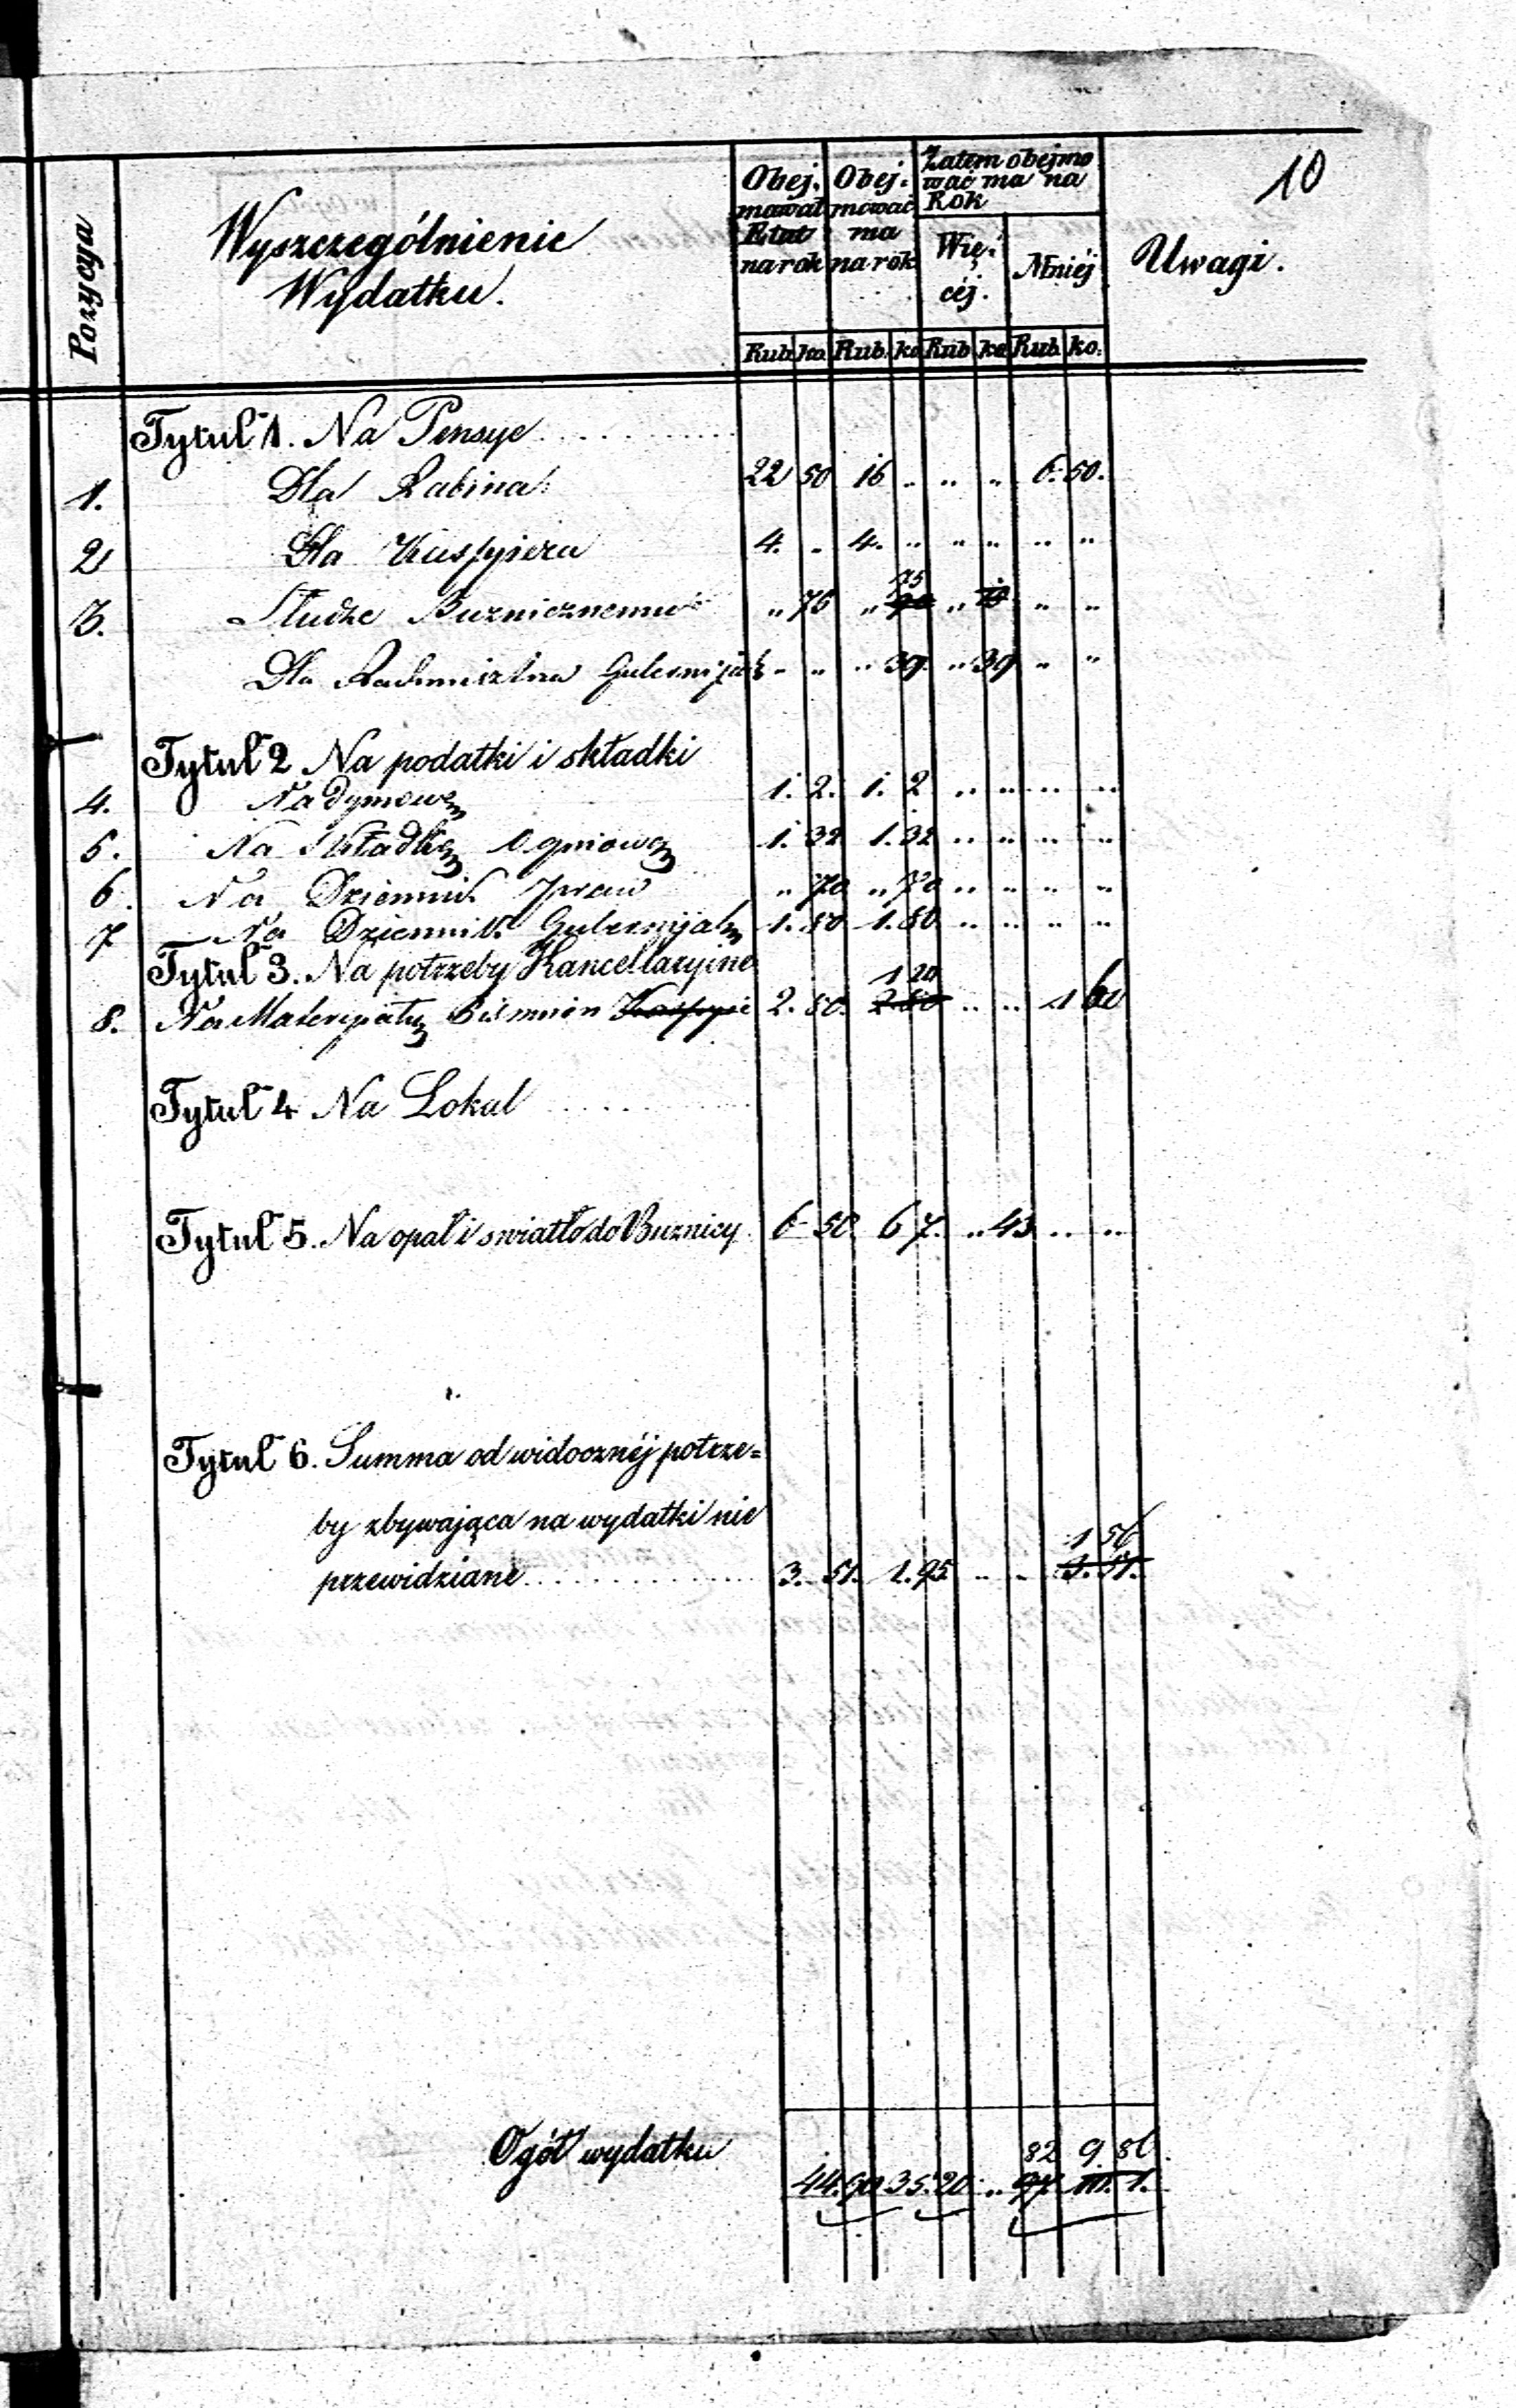 10
Pozycya
Wyszczególnienie
Wydatku.
Obej.
mował
Etat
na rok
Obej-
mować
ma
na rok
Zatem obejmo
wać ma na
Rok
Wię-
céj.
Mniéj
Uwagi.
Rub. ko. Rub. ko Rub ko Rub. ko.
Tytuł 1. Na Pensye
1. Dla Rabina 22 50 16 .. .. .. 6. 50.
2 Dla Kassyiera 4. .. 4. .. .. .. .. ..
3. Słudze Buznicznemu .. 75 .. 75 .. .. ..
Dla Gubernijal .. .. .. 39. .. 39 .. ..
Tytuł 2 Na podatki i składki
4. Na dymowe 1. 2. 1. 2 .. .. .. ..
5. Na Składkę Ogniową 1. 32 1. 32 .. .. .. ..
6. Na Dziennik Praw .. 70 .. 70 .. .. .. ..
7 Na Dziennik Gubernijaln 1. 80 1. 80 .. .. .. ..
Tytuł 3. Na potrzeby Kancellaryine
1 20
8. Na Materyiały Biśmien 2. 80. 2 80 .. .. 1 60
Tytuł 4 Na Lokal
Tytuł 5. Na opał i swiatło do Buznicy 6 50. 6 7. .. 43 .. ..
Tytuł 6. Summa od widocznéj potrze=
by zbywająca na wydatki nie
1 56
przewidziane 3. 51. 1. 95 .. ..
82 9. 86.
Ogół wydatku 44. 90 35. 20 ..